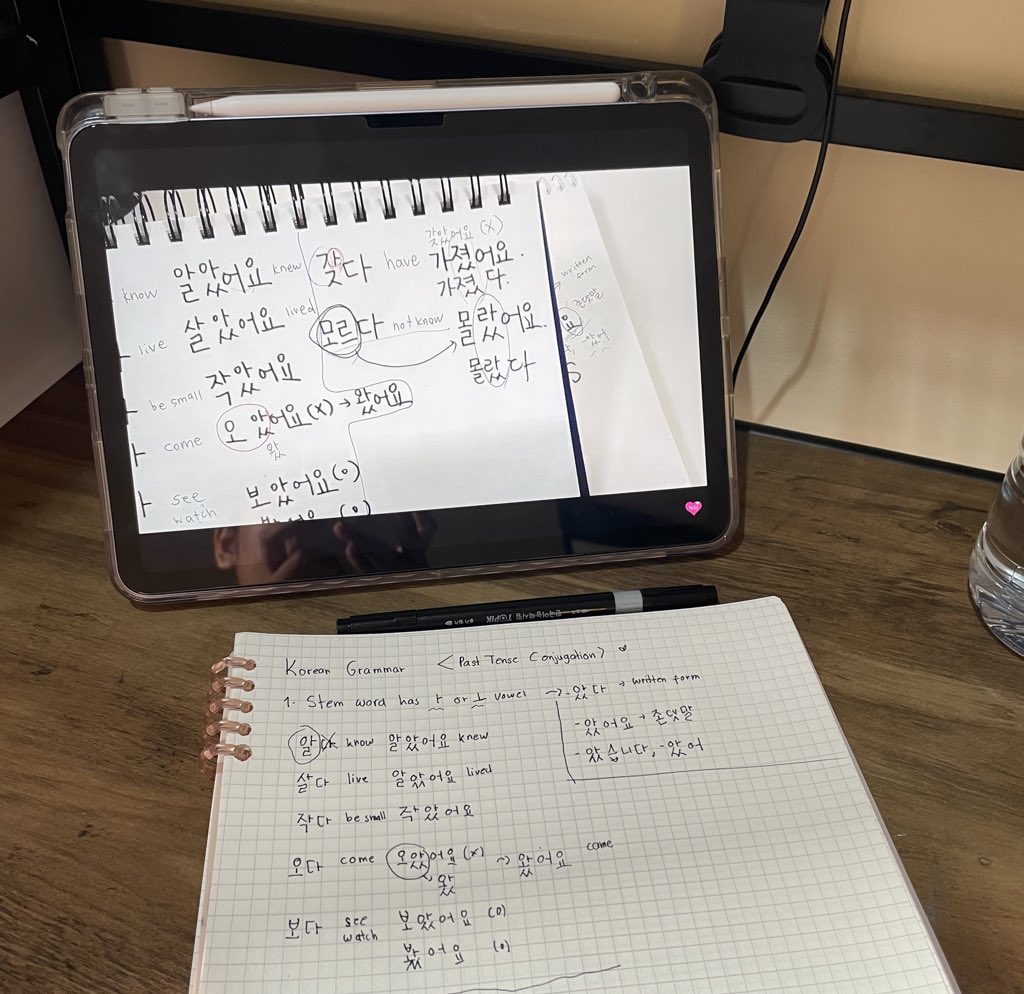 know 알았어요 knew
live 살았어요 lived
be small 작았어요
come 오았어요(X) → 왔어요
왔
see watch 보았어요(o)
(o)
갖았어요 (X)
갖다 have 가졌어요.
가졌다.
모르다 not know 몰랐어요.
몰랐다
written form
존댓말
요
-았어
Korean Grammar <Past Tense Conjugation>
1. Stem word has ㅏ or ㅗ vowel ~> -았다 → written form
-았어요 → 존댓말
-았습니다, -았어
알다 know 알았어요 knew
살다 live 알았어요 lived
작다 be small 작았어요
오다 come 오았어요 (x) ~> 왔어요 come
왔
보다 see watch 보았어요 (o)
봤어요 (o)